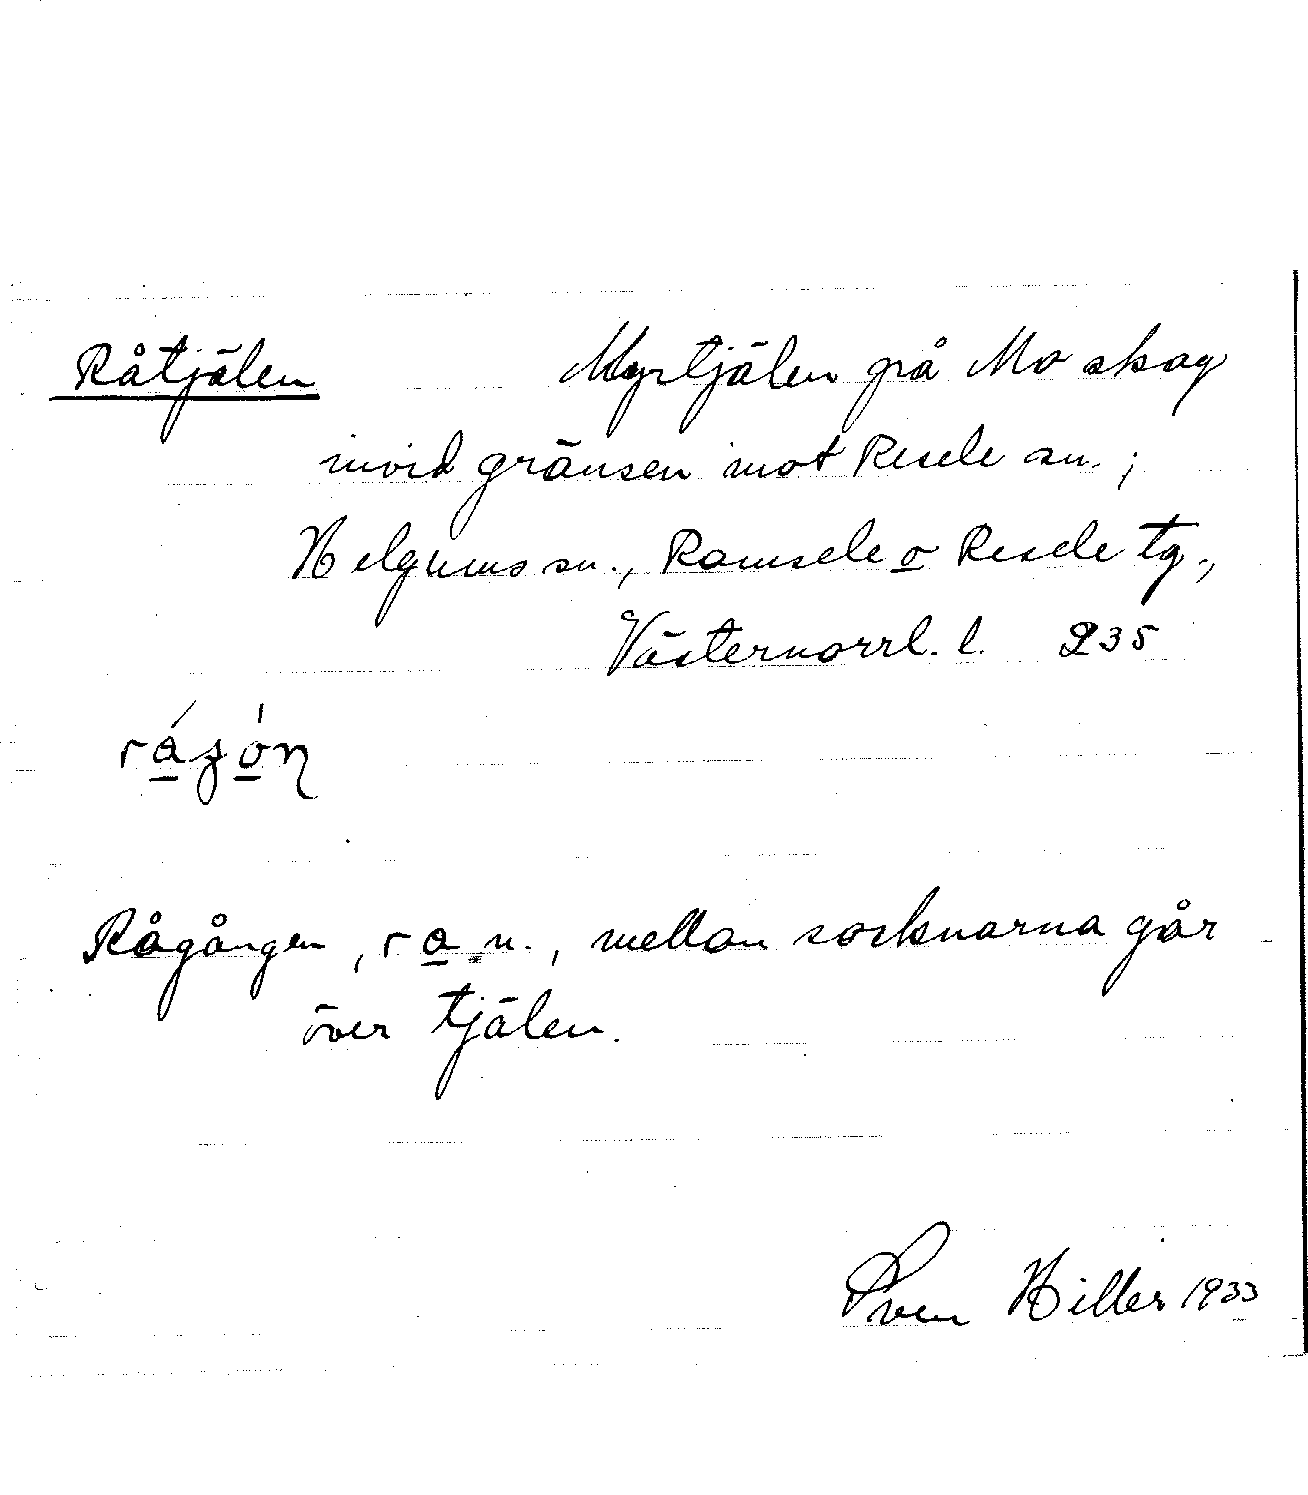 Råtjälen Myrtjälen på Mo skog
invid gränsen mot Resele sn.;
Helgums sn., Ramsele o Resele tg.,
Västernorrl. l. 235
Rågången, ra n., mellan socknarna går
över tjälen.
Sven Hiller 1933